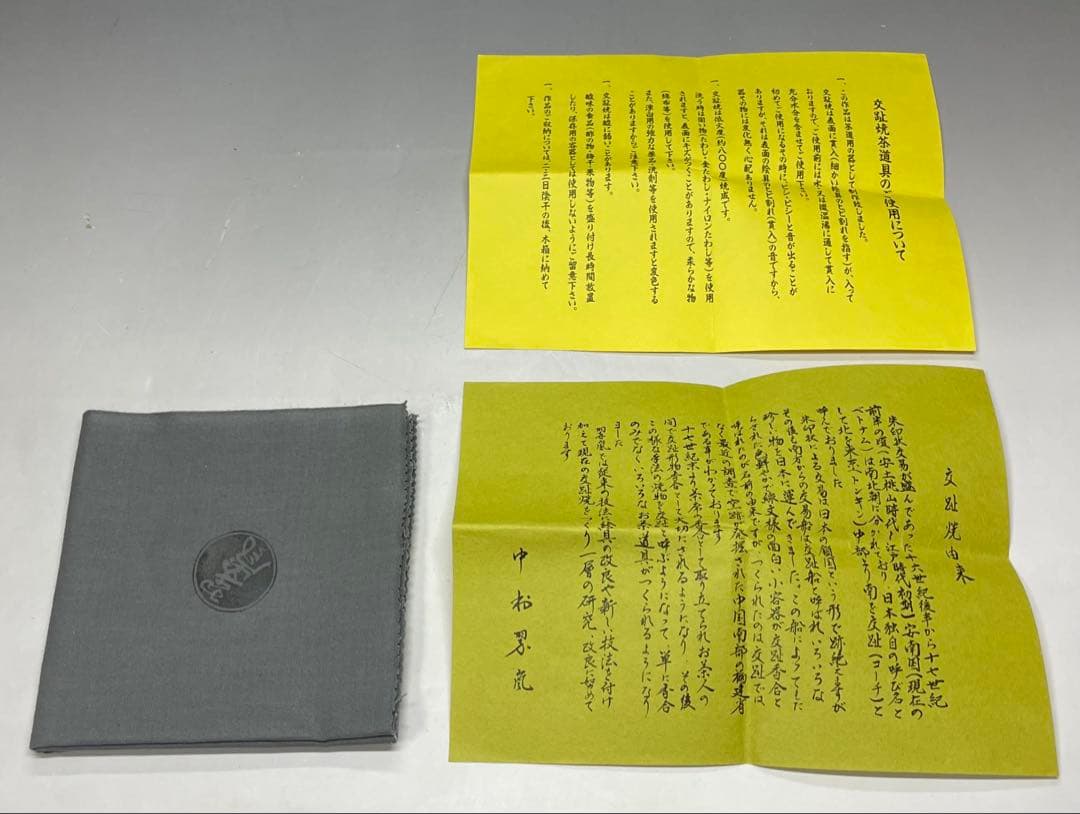 交趾焼茶道具のご使用について
一、この作品は茶道用の器として制作致しました。
交趾焼は表面に貫入(細かい絵具のヒビ割れを指す)が、入って
おりますので、ご使用前には水、又は微温湯に通して貫入に
充分水分を含ませてご使用下さい。
初めてご使用になるその時に、ピシ・ピシーと音が出ることが
ありますが、それは表面の絵具のヒビ割れ(貫入)の音ですから、
器その物には変化無く心配ありません。
一、交趾焼は低火度(約八〇〇度)焼成です。
洗う時は固い物(たわし・金たわし・ナイロンたわし等)を使用
されますと、表面にキズがつくことがありますので、柔らかな物
(綿布等)を使用して下さい。
また、漂白用の強力な薬品・洗剤等を使用されますと変色する
ことがありますからご注意下さい。
一、交趾焼は酸に弱いことがあります。
酸味の食品(酢の物・梅干・果物等)を盛り付け長時間放置
したり、保存用の容器としては使用しないようにご留意下さい。
一、作品のご収納については二・三日陰干の後、木箱に納めて
下さい。
交趾焼由来
朱印状交易が盛んであった十六世紀後半から十七世紀
前半の頃(安土桃山時代〜江戸時代初期)安南国(現在の
ベトナム)は南北朝に分かれており 日本独自の呼び名と
して北を東京(トンキン)中部より南を交趾(コーチ)と
呼んでおりました
朱印状による交易は日本の鎖国という形で跡絶えますが
その後も南方からの交易船は交趾船と呼ばれいろいろな
珍しい物を日本に運んできました。この船によってもた
らされた色鮮やかで紋文様の面白い小容器が交趾香合と
呼ばれたのが名前の由来ですが、つくられたのは交趾では
なく最近の調査で窯跡が発掘された中国南部の福建省
である事がわかっております
十七世紀末より茶席の香合として取り立てられお茶人の
間で交趾形物香合として大切にされるようになり その後
この様な手法の焼物を交趾と呼ぶようになって、単に香合
のみでなくいろいろなお茶道具がつくられるようになり
ました
翠嵐では従来の技法、絵具の改良や新しい技法を付け
加えて現在の交趾焼をつくり 一層の研究、改良に努めて
おります
中村翠嵐